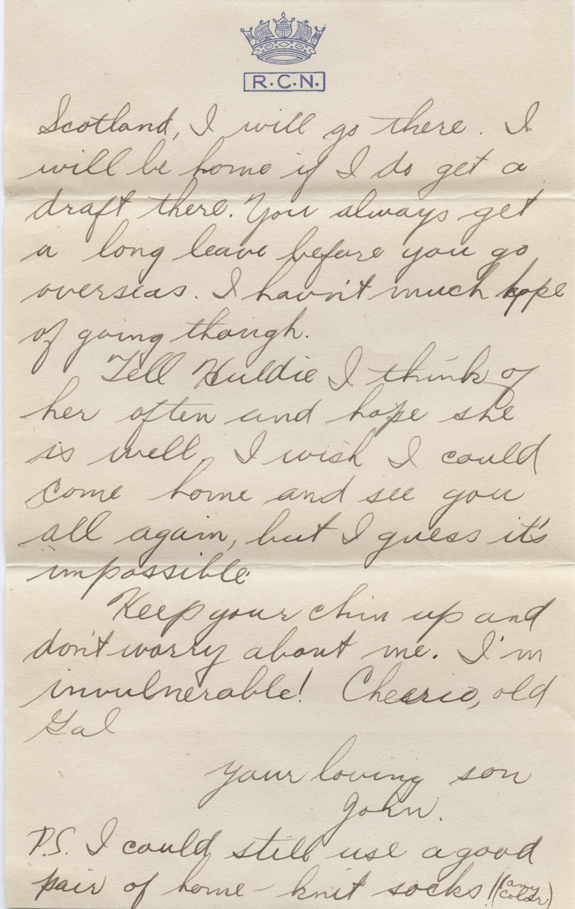 R.C.N.
Scotland, I will go there. I
will be home if I do get a
draft there. You always get
a long leave before you go
overseas. I havn't much hope
of going though.
Tell Huldie I think of
her often and hope she
is well. I wish I could
come home and see you
all again, but I guess it's
impossible.
Keep your chin up and
don't worry about me. I'm
invulnerable! Cheerio, old
Gal
Your loving son
John.
P.S. I could still use a good
pair of home-knit socks!! (any
color)